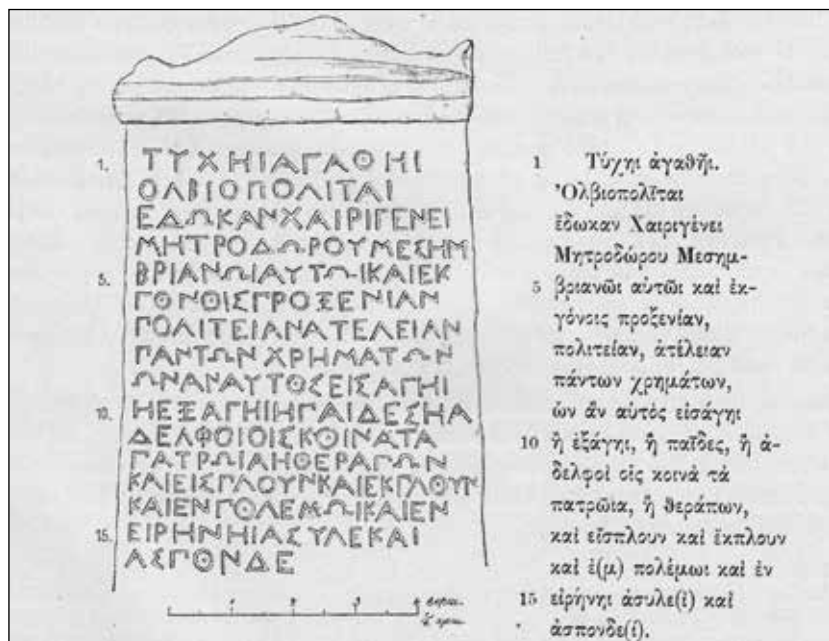 1. ΤΥΧΗΙΑΓΑΘΗΙ
ΟΛΒΙΟΠΟΛΙΤΑΙ
ΕΔΩΚΑΝΧΑΙΡΙΓΕΝΕΙ
ΜΗΤΡΟΔΩΡΟΥΜΕΣΗΜ
5. ΒΡΙΑΝΩΙΑΥΤΩΙΚΑΙΕΚ
ΓΟΝΟΙΣΠΡΟΞΕΝΙΑΝ
ΠΟΛΙΤΕΙΑΝΑΤΕΛΕΙΑΝ
ΠΑΝΤΩΝΧΡΗΜΑΤΩΝ
ΩΝΑΝΑΥΤΟΣΕΙΣΑΓΗΙ
10. ΗΕΞΑΓΗΙΗΠΑΙΔΕΣΗΑ
ΔΕΛΦΟΙΟΙΣΚΟΙΝΑΤΑ
ΠΑΤΡΩΙΑΗΘΕΡΑΠΩΝ
ΚΑΙΕΙΣΠΛΟΥΝΚΑΙΕΚΠΛΟΥΝ
ΚΑΙΕΝΠΟΛΕΜΩΙΚΑΙΕΝ
15. ΕΙΡΗΝΗΙΑΣΥΛΕΚΑΙ
ΑΣΠΟΝΔΕ
1 Τύχηι ἀγαθῆι.
Ὀλβιοπολῖται
ἔδωκαν Χαιριγένει
Μητροδώρου Μεσημ-
5 βριανῶι αὐτῶι καὶ ἐκ-
γόνοις προξενίαν,
πολιτείαν, ἀτέλειαν
πάντων χρημάτων,
ὧν ἂν αὐτὸς εἰσάγηι
10 ἢ ἐξάγηι, ἢ παῖδες, ἢ ἀ-
δελφοὶ οἷς κοινὰ τὰ
πατρῶια, ἢ θεράπων,
καὶ εἴσπλουν καὶ ἔκπλουν
καὶ ἐ(μ) πολέμωι καὶ ἐν
15 εἰρήνηι ἀσυλε(ὶ) καὶ
ἀσπονδε(ί).